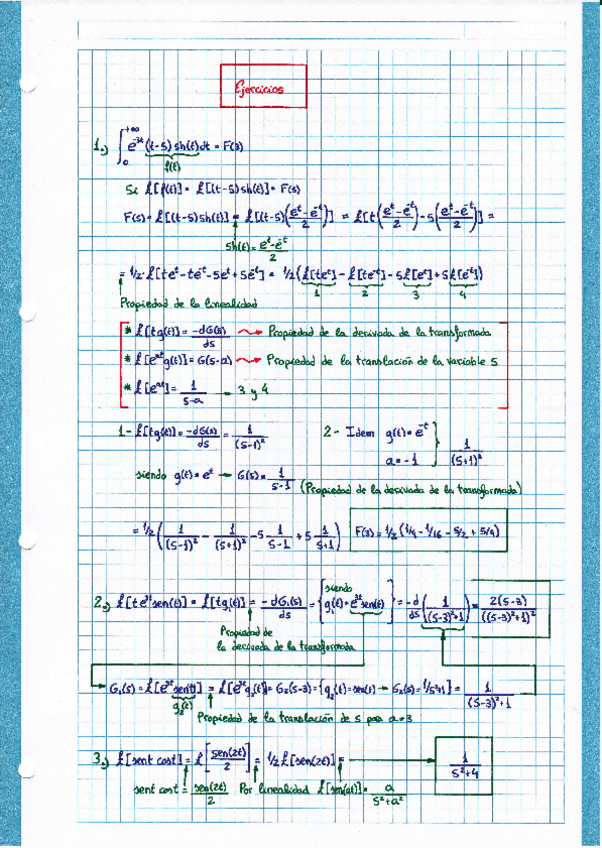 Ejercicios
1.) ∫₀^{+∞} e^{-3t} (t-5) sh(t) dt = F(3)
f(t)
Si ℒ[f(t)] = ℒ[(t-5) sh(t)] = F(s)
F(s) = ℒ[(t-5) sh(t)] = ℒ[(t-5)((e^t - e^{-t})/2)] = ℒ[t((e^t - e^{-t})/2) - 5((e^t - e^{-t})/2)] =
sh(t) = (e^t - e^{-t})/2
= 1/2 ℒ[te^t - te^{-t} - 5e^t + 5e^{-t}] = 1/2 (ℒ[te^t] - ℒ[te^{-t}] - 5ℒ[e^t] + 5ℒ[e^{-t}])
1 2 3 4
Propiedad de la linealidad
* ℒ[tg(t)] = -dG(s)/ds ⇝ Propiedad de la derivada de la transformada
* ℒ[e^{at}g(t)] = G(s-a) ⇝ Propiedad de la translación de la variable s
* ℒ[e^{at}] = 1/(s-a) → 3 y 4
1- ℒ[tg(t)] = -dG(s)/ds = 1/(s-1)²
2- Idem g(t) = e^{-t}
a = -1 } 1/(s+1)²
siendo g(t) = e^t → G(s) = 1/(s-1) (Propiedad de la derivada de la transformada)
= 1/2 (1/(s-1)² - 1/(s+1)² - 5 1/(s-1) + 5 1/(s+1)) F(3) = 1/2 (1/4 - 1/16 - 5/2 + 5/4)
2.) ℒ[te^{3t}sen(t)] = ℒ[tg₁(t)] = -dG₁(s)/ds = {siendo g₁(t) = e^{3t}sen(t)} = -d/ds (1/((s-3)²+1)) = 2(s-3)/((s-3)²+1)²
Propiedad de
la derivada de la transformada
G₁(s) = ℒ[e^{3t}sen(t)] = ℒ[e^{3t}g₂(t)] = G₂(s-3) = {g₂(t) = sen(t) → G₂(s) = 1/s²+1} = 1/((s-3)²+1)
g₂(t)
Propiedad de la translación de s para a=3
3.) ℒ[sent cost] = ℒ[sen(2t)/2] = 1/2 ℒ[sen(2t)] = 1/(s²+4)
sent cost = sen(2t)/2 Por linealidad ℒ[sen(at)] = a/(s²+a²)